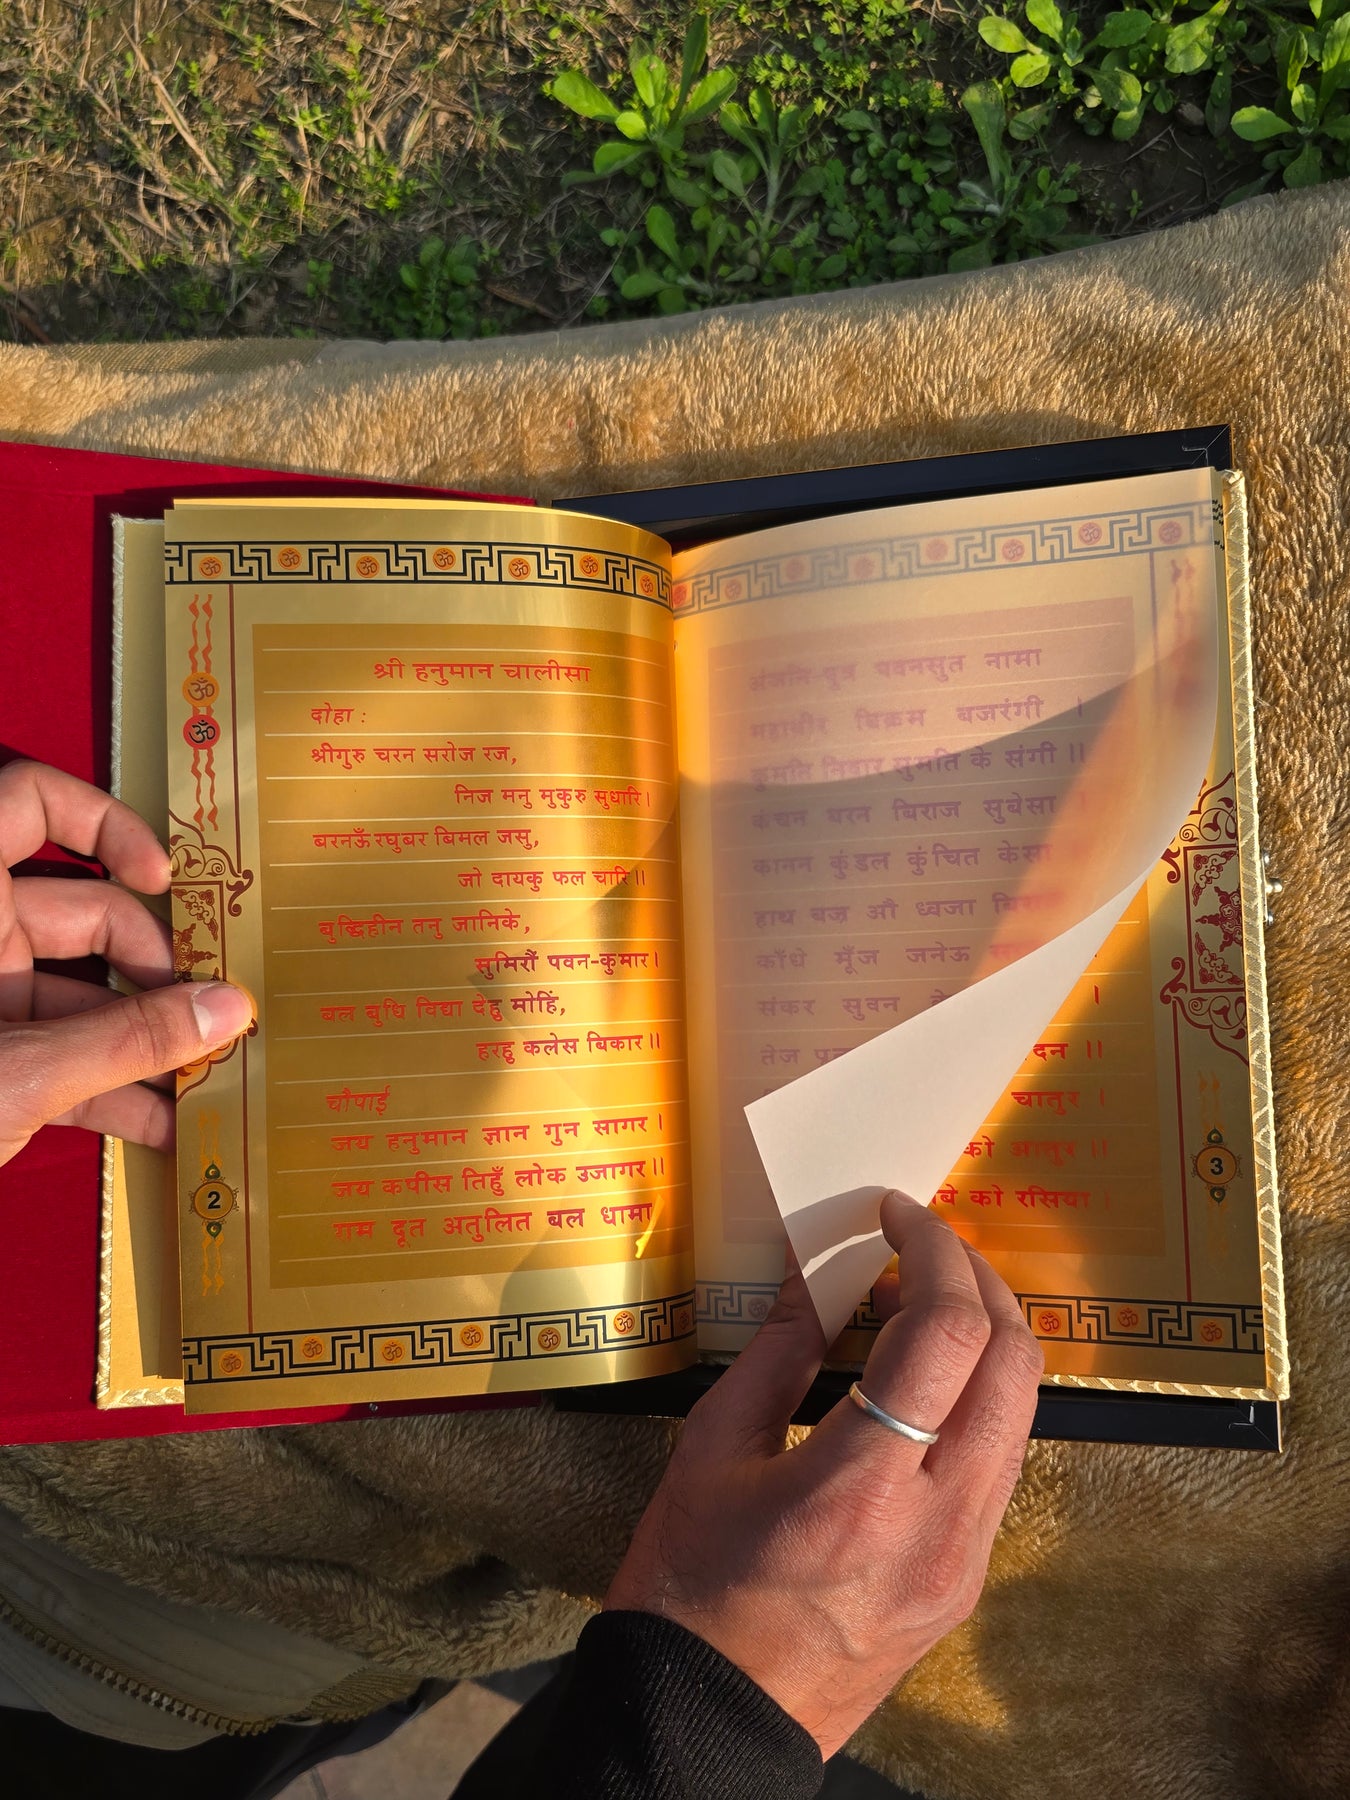 श्री हनुमान चालीसा
दोहा :
श्रीगुरु चरन सरोज रज,
निज मनु मुकुरु सुधारि।
बरनऊँ रघुबर बिमल जसु,
जो दायकु फल चारि।।
बुद्धिहीन तनु जानिके,
सुमिरौं पवन-कुमार।
बल बुधि विद्या देहु मोहिं,
हरहु कलेस बिकार।।
चौपाई
जय हनुमान ज्ञान गुन सागर।
जय कपीस तिहुँ लोक उजागर।।
राम दूत अतुलित बल धामा
2
अंजनि-पुत्र पवनसुत नामा
महाबीर बिक्रम बजरंगी ।
कुमति निवार सुमति के संगी ।।
कंचन बरन बिराज सुबेसा
कानन कुंडल कुंचित केसा
हाथ बज्र औ ध्वजा
काँधे मूँज जनेऊ
संकर सुवन
तेज
।।
चातुर ।
को आतुर ।।
को रसिया।
3